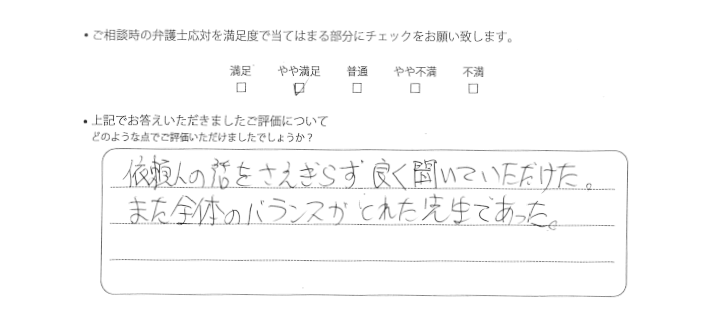 ・ご相談時の弁護士応対を満足度で当てはまる部分にチェックをお願い致します。
満足 やや満足 普通 やや不満 不満
□ ☑ □ □ □
・上記でお答えいただきましたご評価について
どのような点でご評価いただけましたでしょうか？
依頼人の話をさえぎらず良く聞いていただけた。
また全体のバランスがとれた先生であった。